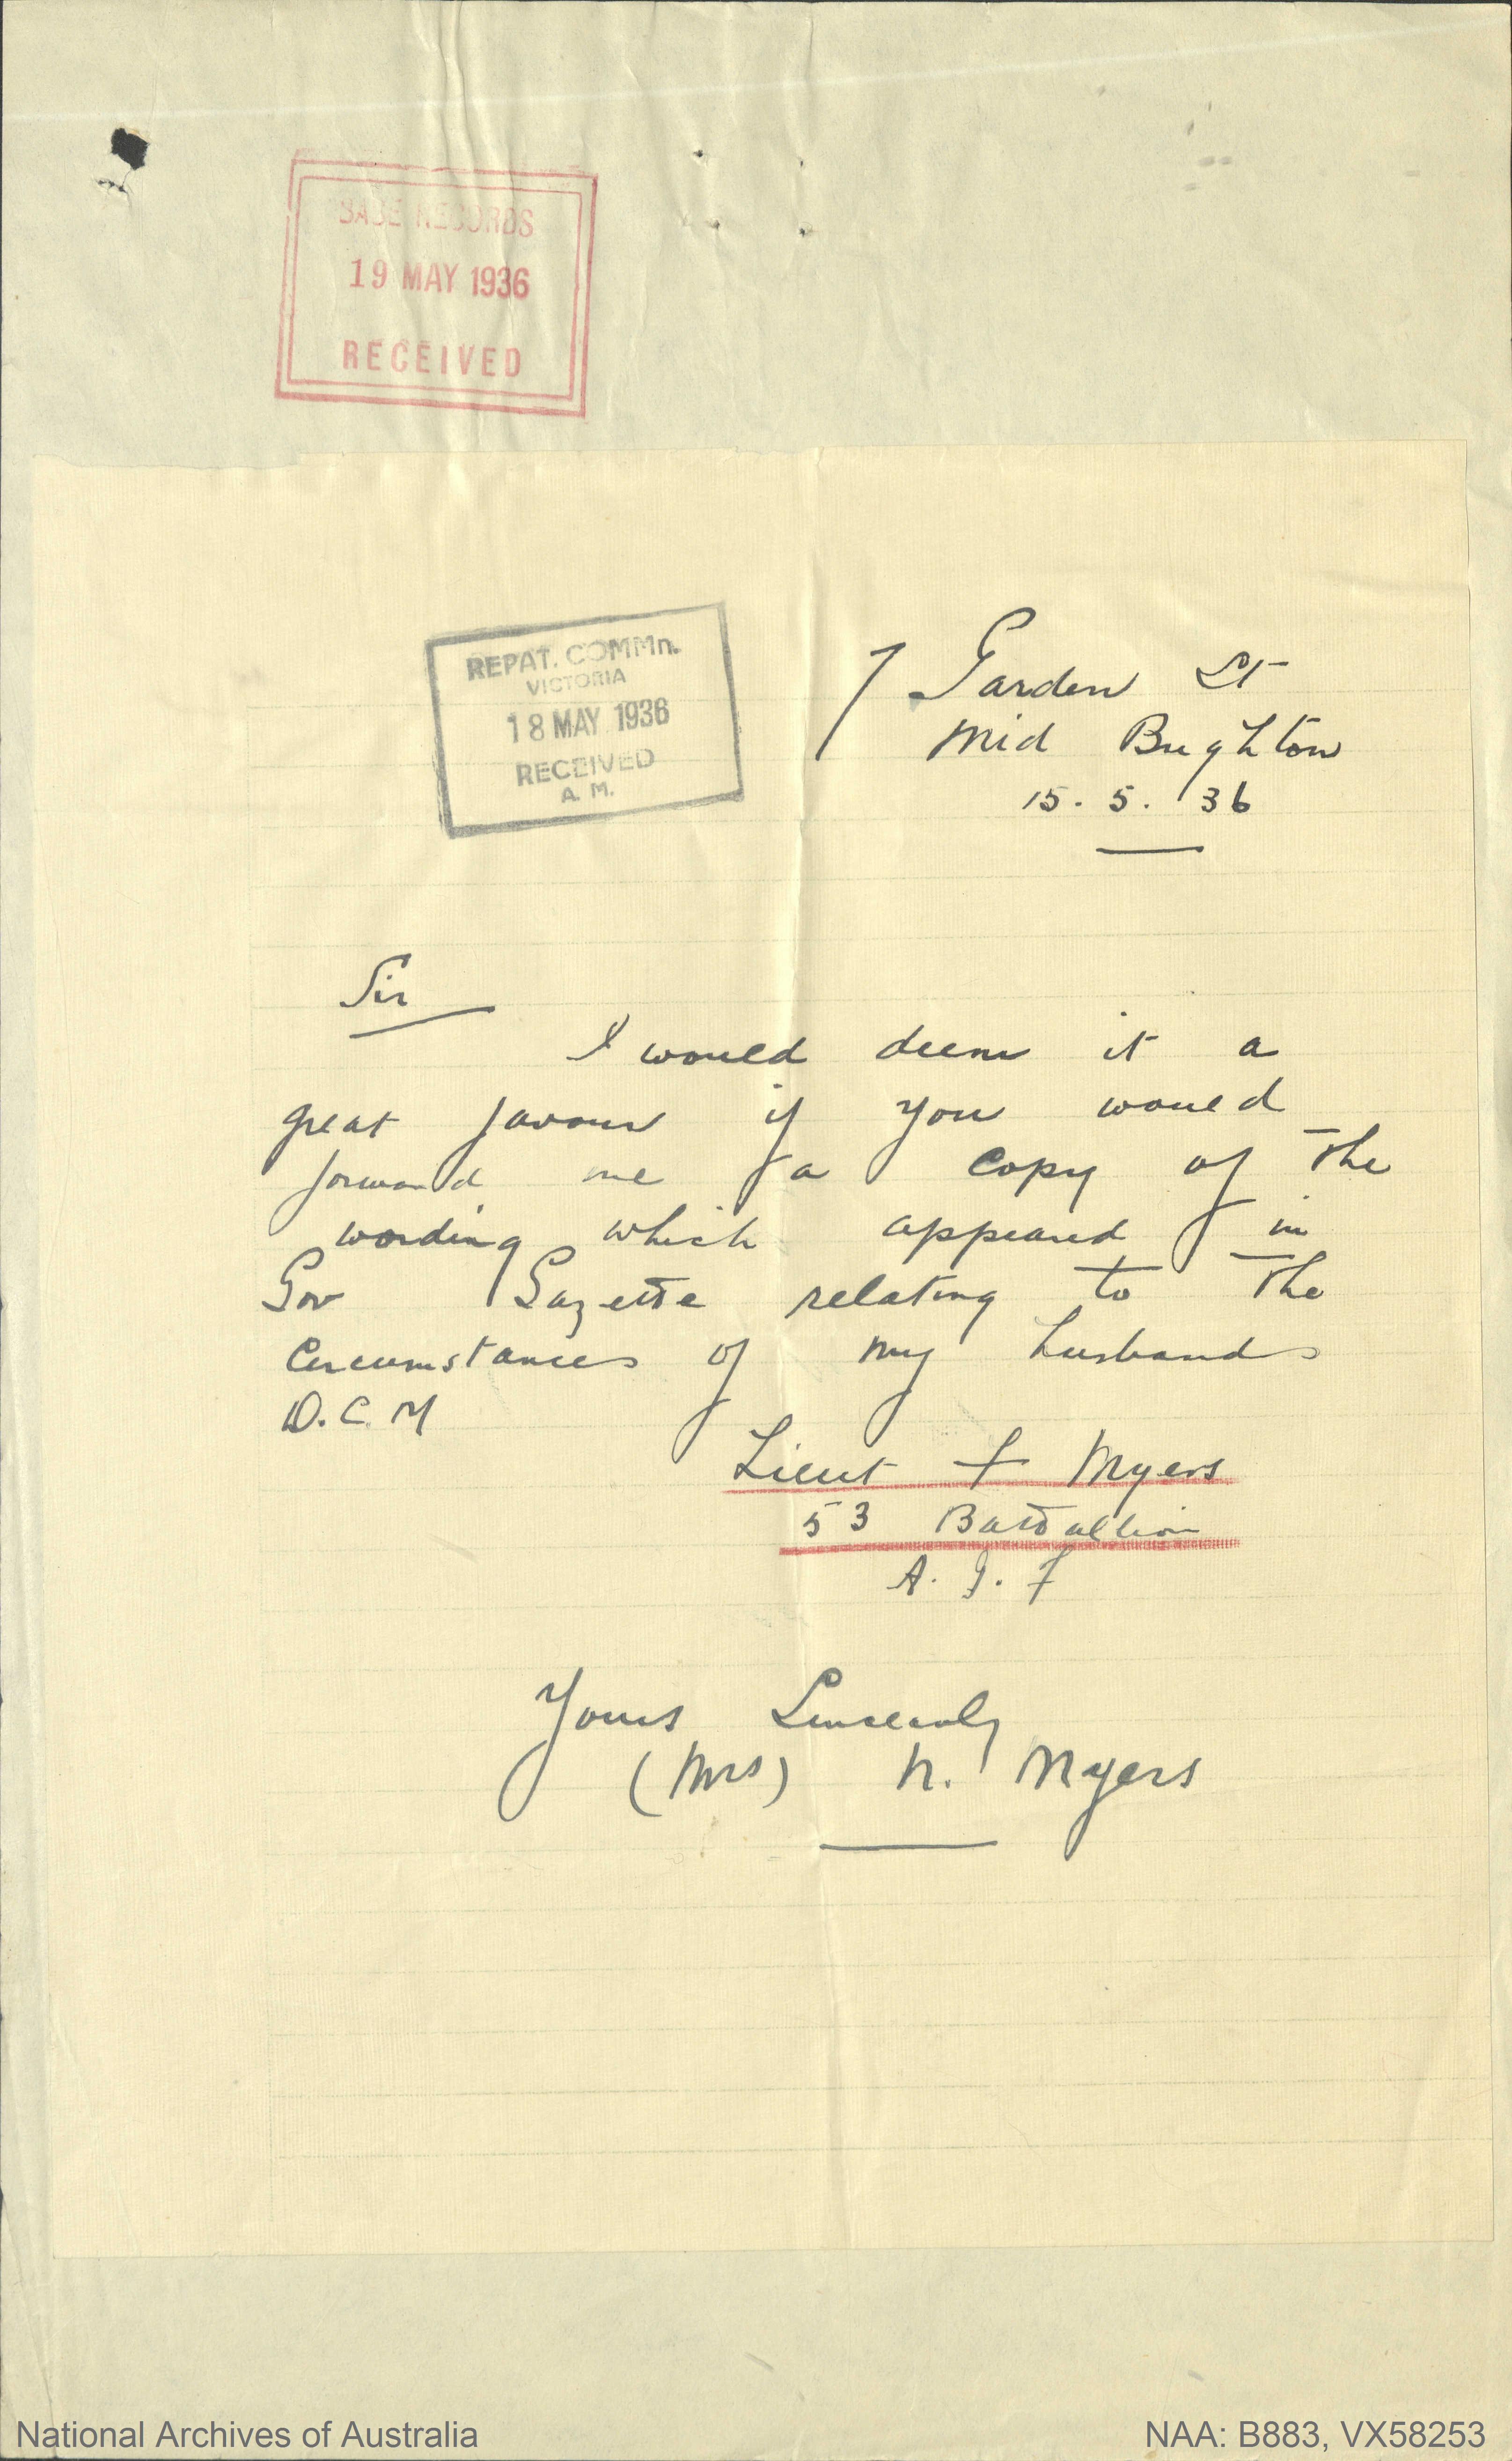 BASE RECORDS
19 MAY 1936
RECEIVED
REPAT. COMMn.
VICTORIA
18 MAY 1936
RECEIVED
A. M.
7 Garden St
Mid Brighton
15. 5. 36
Sir
I would deem it a
great favour if you would
forward me a copy of the
wording which appeared in
Gov Gazette relating to the
Circumstances of my husbands
D.C.M
Lieut F Myers
53 Battallion
A. I. F
Yours Sincerely
(Mrs) N. Myers
National Archives of Australia
NAA: B883, VX58253